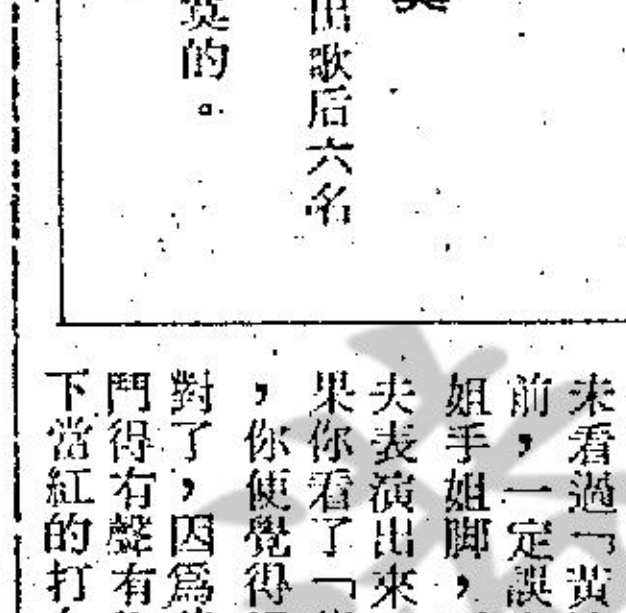 出歌后六名
的。
未看過「黄
前，一定誤
姐手姐脚，
夫表演出來
果你看了「
，你便覺得
對了，因爲
鬥得有聲有
下當紅的打